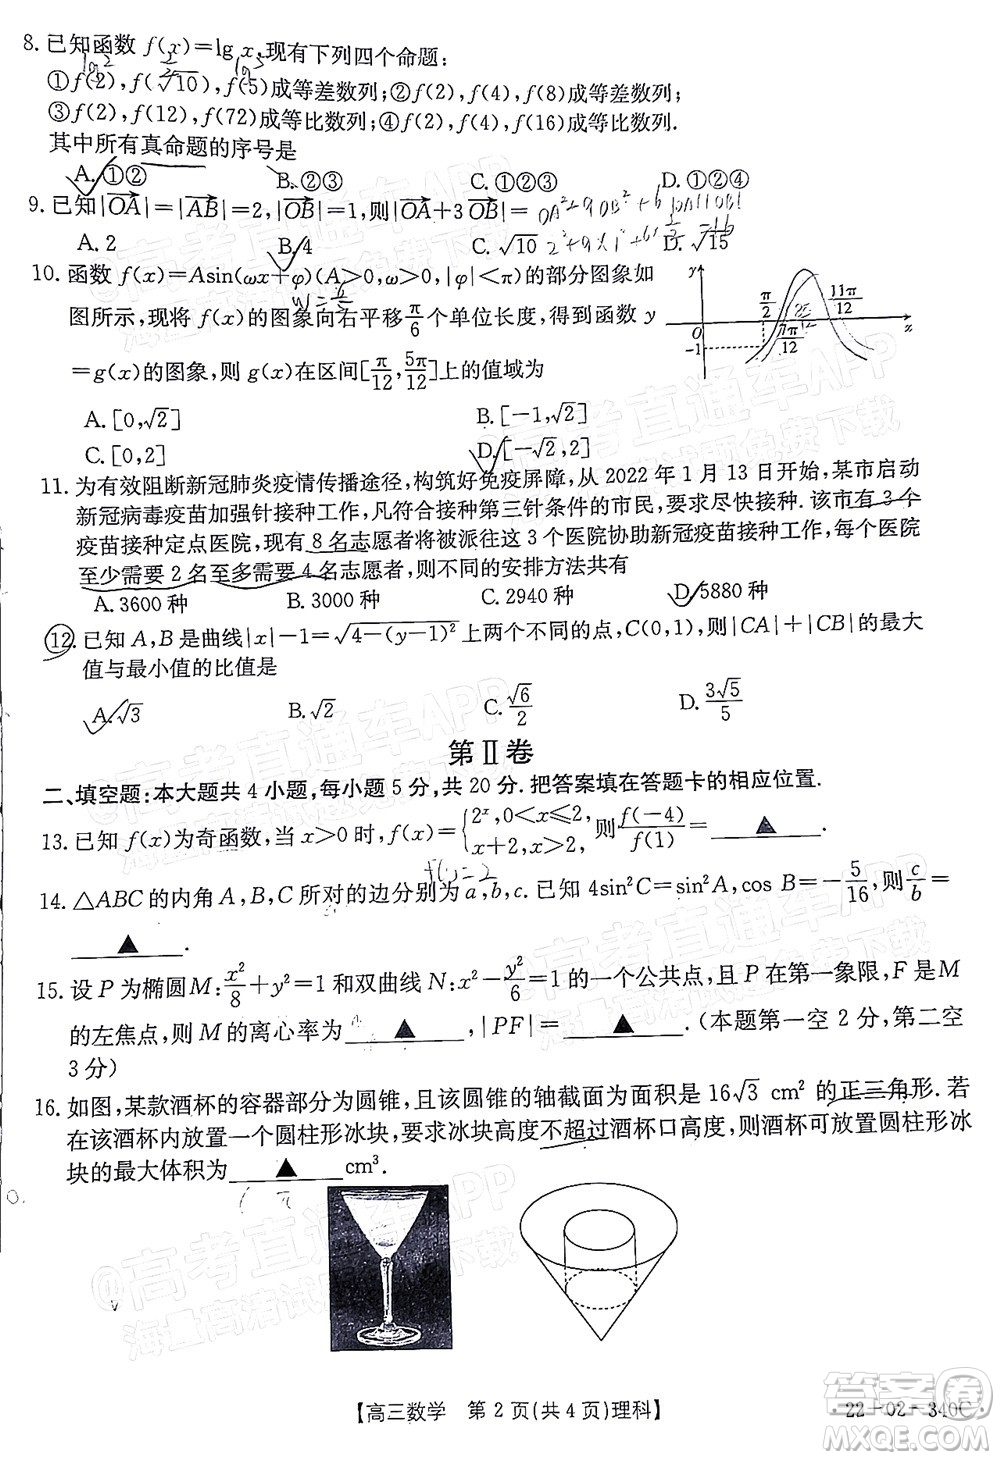 8. 已知函数 f(x)=lg x,现有下列四个命题:
①f(2),f(√10),f(5)成等差数列;②f(2),f(4),f(8)成等差数列;
③f(2),f(12),f(72)成等比数列;④f(2),f(4),f(16)成等比数列.
其中所有真命题的序号是
A. ①② B. ②③ C. ①②④ D. ①②④
9. 已知|OA|=|AB|=2,|OB|=1,则|OA+3OB|=
A. 2 B. 4 C. √10 D. √15
10. 函数 f(x)=Asin(ωx+φ)(A>0,ω>0,|φ|<π)的部分图象如
图所示,现将 f(x)的图象向右平移π/6个单位长度,得到函数 y
=g(x)的图象,则 g(x)在区间[π/12,5π/12]上的值域为
A. [0,√2] B. [-1,√2]
C. [0,2] D. [-√2,√2]
y π/2 11π/12 O 7π/12 x -1
11. 为有效阻断新冠肺炎疫情传播途径,构筑好免疫屏障,从 2022 年 1 月 13 日开始,某市启动
新冠病毒疫苗加强针接种工作,凡符合接种第三针条件的市民,要求尽快接种.该市有 3 个
疫苗接种定点医院,现有 8 名志愿者将被派往这 3 个医院协助新冠疫苗接种工作,每个医院
至少需要 2 名至多需要 4 名志愿者,则不同的安排方法共有
A. 3600 种 B. 3000 种 C. 2940 种 D. 5880 种
12. 已知 A,B 是曲线|x|-1=√(4-(y-1)²)上两个不同的点,C(0,1),则|CA|+|CB|的最大
值与最小值的比值是
A. √3 B. √2 C. √6/2 D. 3√5/5
第Ⅱ卷
二、填空题:本大题共 4 小题,每小题 5 分,共 20 分.把答案填在答题卡的相应位置.
13. 已知 f(x)为奇函数,当 x>0 时,f(x)={2ˣ,0<x≤2, x+2,x>2, 则f(-4)/f(1)= ▲ .
14. △ABC 的内角 A,B,C 所对的边分别为 a,b,c.已知 4sin²C=sin²A,cos B=-5/16,则c/b=
▲ .
15. 设 P 为椭圆 M:x²/8+y²=1 和双曲线 N:x²-y²/6=1 的一个公共点,且 P 在第一象限,F 是 M
的左焦点,则 M 的离心率为 ▲ ,|PF|= ▲ .(本题第一空 2 分,第二空
3 分)
16. 如图,某款酒杯的容器部分为圆锥,且该圆锥的轴截面为面积是 16√3 cm² 的正三角形.若
在该酒杯内放置一个圆柱形冰块,要求冰块高度不超过酒杯口高度,则酒杯可放置圆柱形冰
块的最大体积为 ▲ cm³.
【高三数学 第 2 页(共 4 页)理科】
·22-02-340C·
答案卷
MXQE.COM